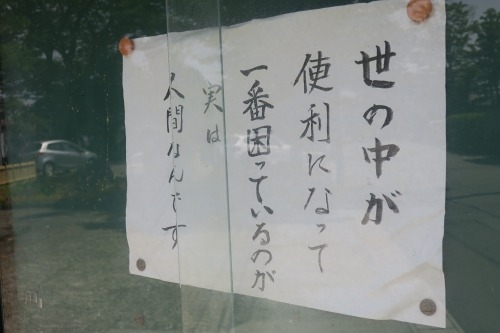 世の中が
使利になって
一番困っているのが
実は
人間なんです